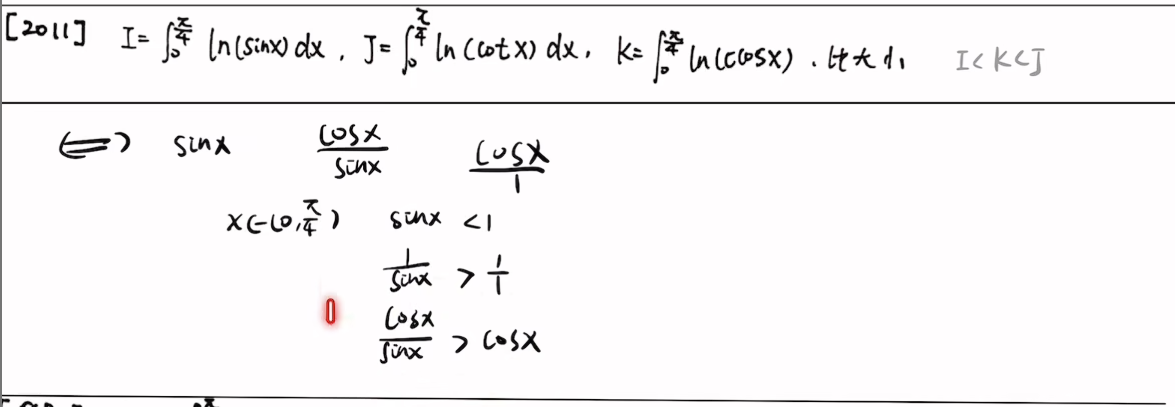 [2011] I=∫₀^(π/4) ln(sinx)dx, J=∫₀^(π/4) ln(cotx)dx, K=∫₀^(π/4) ln(cosx). 比大小 I<K<J
⟺ sinx cosx/sinx cosx/1
x∈(0,π/4) sinx <1
1/sinx > 1/1
cosx/sinx > cosx